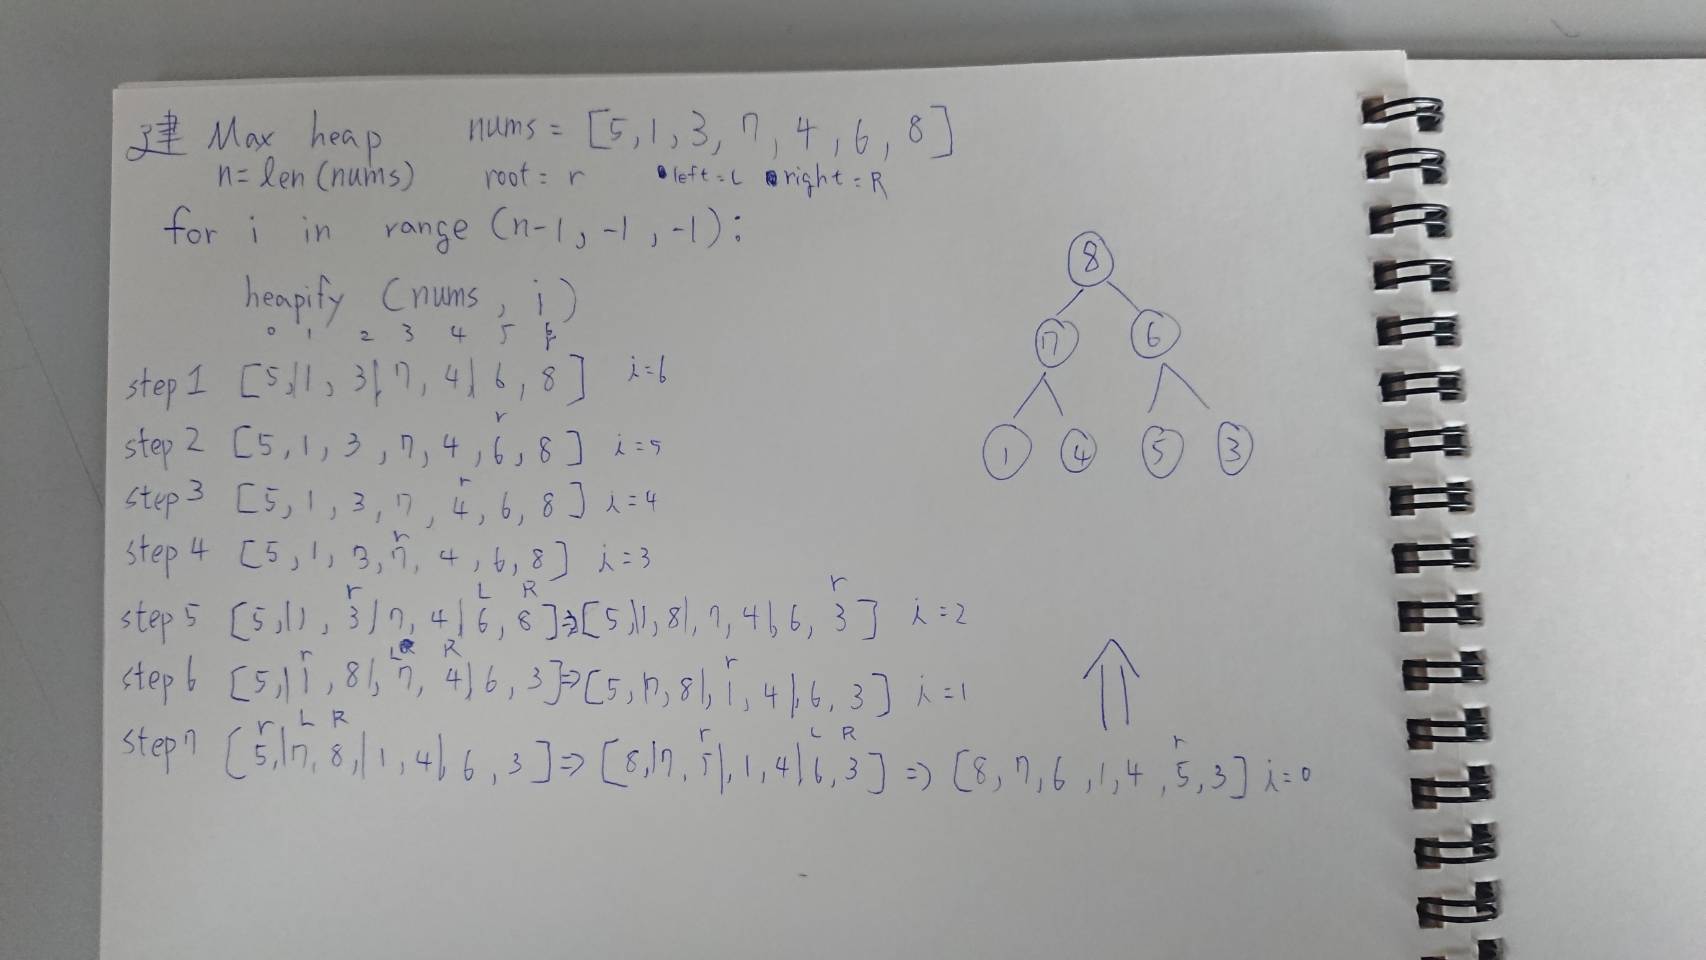 建 Max heap nums = [5,1,3,7,4,6,8]
n=len(nums) root=r left=L right=R
for i in range(n-1,-1,-1):
heapify(nums,i)
0 1 2 3 4 5 6
step1 [5,|1,3|,7,4|,6,8] i=6
r
step2 [5,1,3,7,4,6,8] i=5
r
step3 [5,1,3,7,4,6,8] i=4
r
step4 [5,1,3,7,4,6,8] i=3
r L R r
step5 [5,|1,3|,7,4|,6,8]⇒[5,|1,8|,7,4|,6,3] i=2
r L R r
step6 [5,|1,8|,7,4|,6,3]⇒[5,7,8|,1,4|,6,3] i=1
r L R r L R r
step7 [5,|7,8,|1,4|,6,3]⇒[8,|7,5|,1,4|,6,3]⇒[8,7,6,1,4,5,3] i=0
8
7 6
1 4 5 3